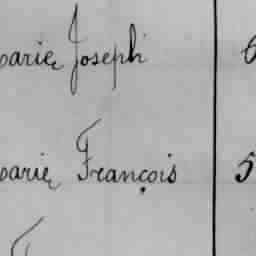 arie Joseph 6
arie François 5